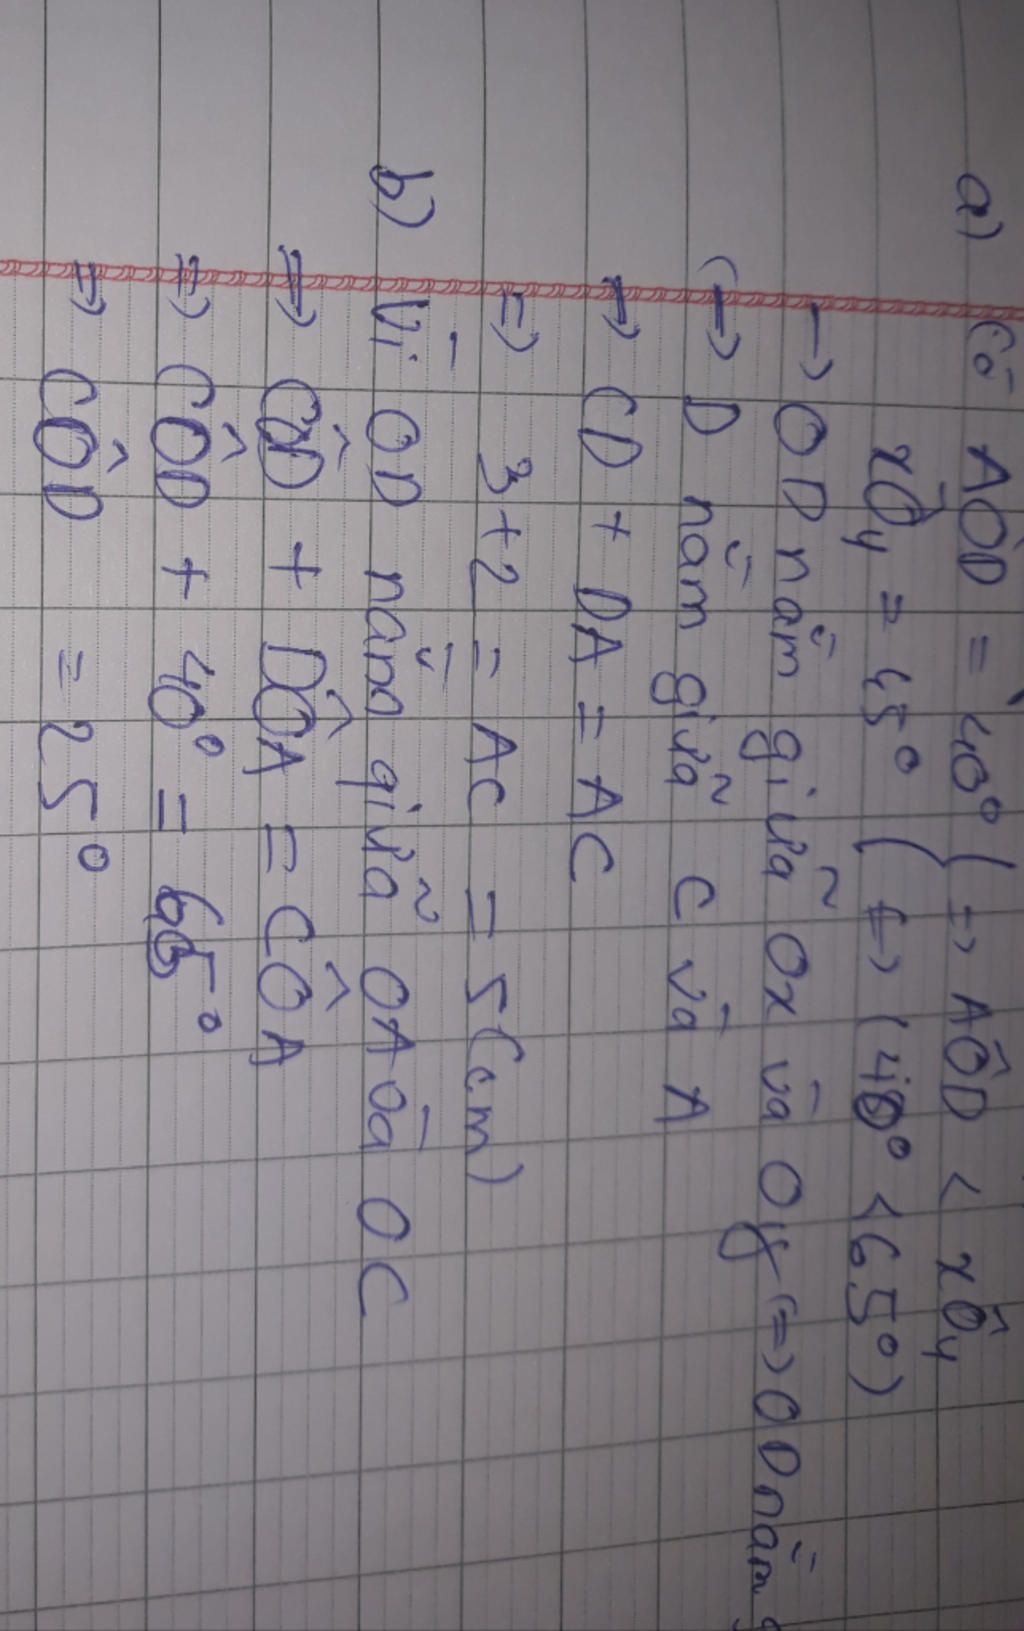 a) Có AÔD = 40° ( => AÔD < xÔy
xÔy = 45° ( (=> (40° < 65°)
-> OD nằm giữa Ox và Oy (=> OD nằm
(=> D nằm giữa C và A
=> CD + DA = AC
=> 3 + 2 = AC = 5 (cm)
b) Vì OD nằm giữa OA và OC
=> CÔD + DÔA = CÔA
=> CÔD + 40° = 65°
=> CÔD = 25°